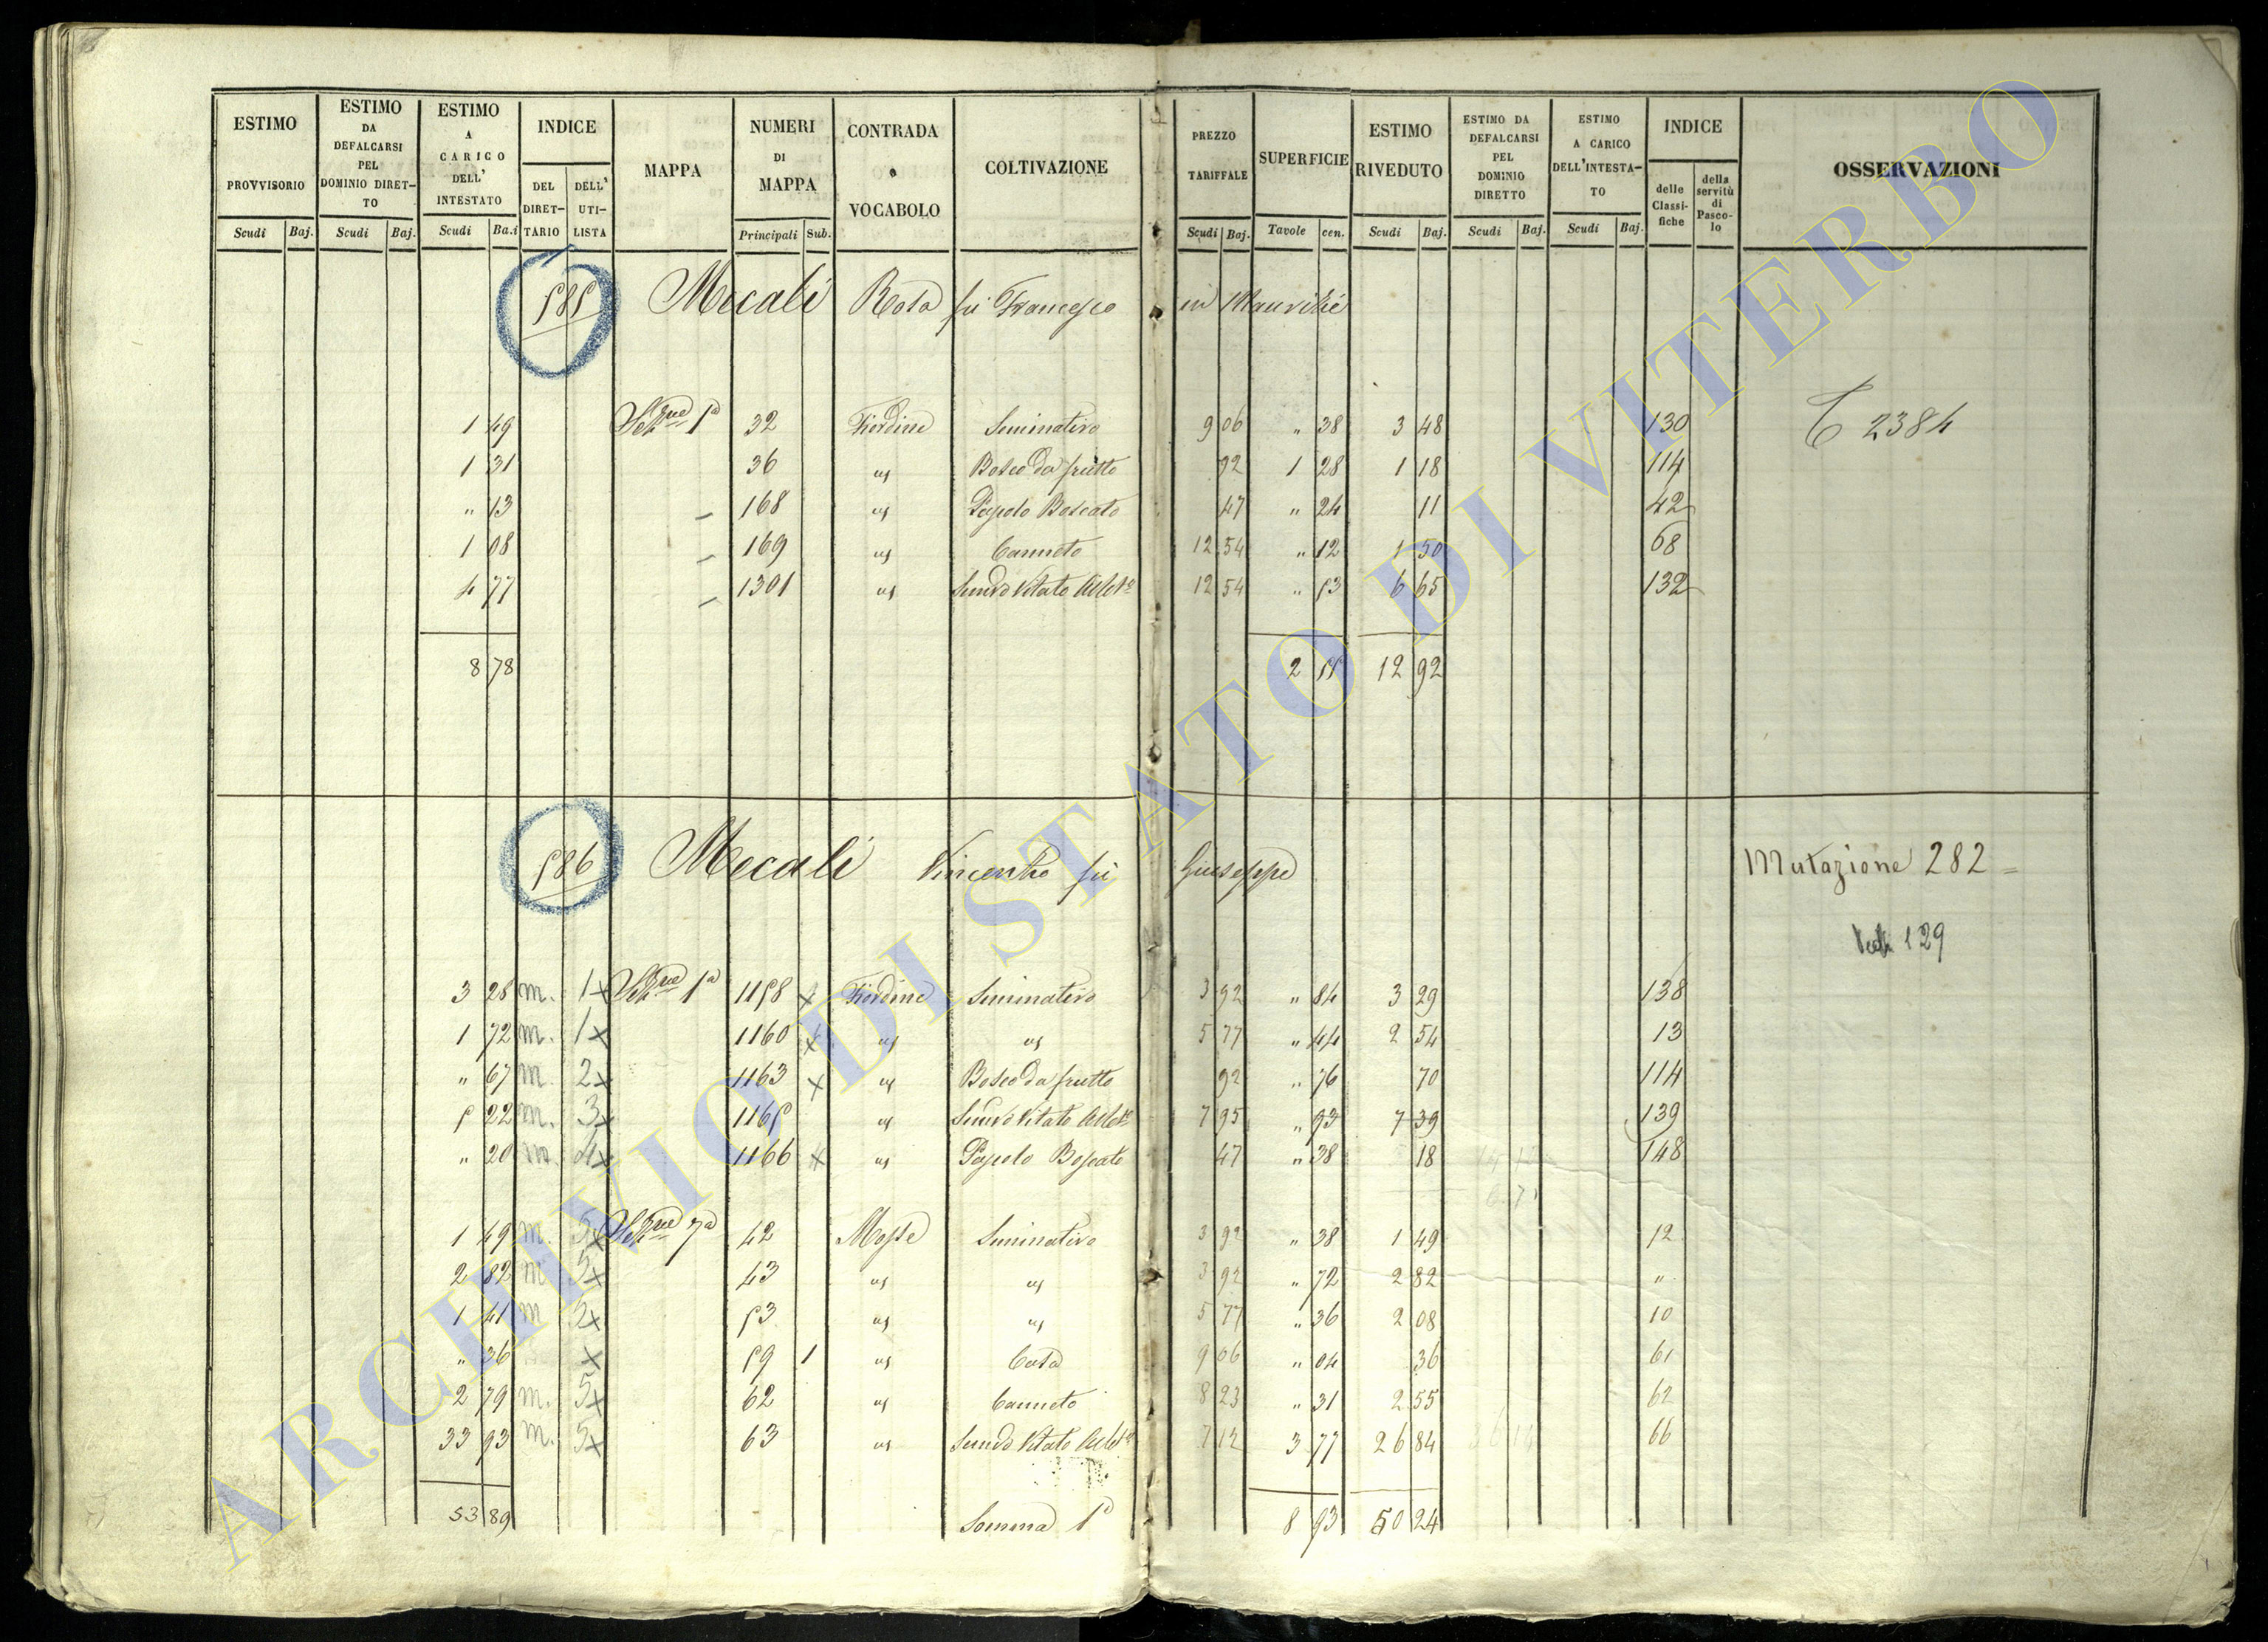 ESTIMO PROVVISORIO Scudi Baj.
ESTIMO DA DEFALCARSI PEL DOMINIO DIRET-TO Scudi Baj.
ESTIMO A CARICO DELL' INTESTATO Scudi Ba.i
INDICE DEL DIRET-TARIO DELL' UTI-LISTA
MAPPA
NUMERI DI MAPPA Principali Sub.
CONTRADA o VOCABOLO
COLTIVAZIONE
PREZZO TARIFFALE Scudi Baj.
SUPERFICIE Tavole cen.
ESTIMO RIVEDUTO Scudi Baj.
ESTIMO DA DEFALCARSI PEL DOMINIO DIRETTO Scudi Baj.
ESTIMO A CARICO DELL'INTESTA-TO Scudi Baj.
INDICE delle Classi-fiche della servitù di Pasco-lo
OSSERVAZIONI
585 Mecali Rosa fu Francesco in Maurizi
1 49 Sezne 1a 32 Fiordine Seminativo 9 06 " 38 3 48 130 2384
1 31 36 us Bosco da frutto 92 1 28 1 18 114
" 13 – 168 us Pascolo Boscato 47 " 24 11 42
1 08 – 169 us Canneto 12 54 " 12 1 50 68
4 77 – 1301 us Semvo Vitato Albto 12 54 " 53 6 65 132
8 78 2 55 12 92
586 Mecali Vincenzo fu Giuseppe Mutazione 282 =
129
3 28 m. 1x Sezne 1a 1158 x Fiordine Seminativo 3 92 " 84 3 29 138
1 72 m. 1x 1160 x us us 5 77 " 44 2 54 13
" 67 m 2x 1163 x us Bosco da frutto 92 " 76 70 114
5 22 m. 3x 1165 us Semvo Vitato Albto 7 95 " 93 7 39 139
" 20 m. 4x 1166 x us Pascolo Boscato 47 " 38 18 148
1 49 m. 5x Sezne 7a 42 Mosse Seminativo 3 92 " 38 1 49 12
2 82 m 5x 43 us us 3 92 " 72 2 82 "
1 41 m 5x 53 us us 5 77 " 36 2 08 10
" 36 x 59 1 us Casa 9 06 " 04 36 61
2 79 m. 5x 62 us Canneto 8 23 " 31 2 55 62
33 93 m. 5x 63 us Semvo Vitato Albto 7 12 3 77 26 84 66
53 89 Somma 1a 8 93 50 24
ARCHIVIO DI STATO DI VITERBO